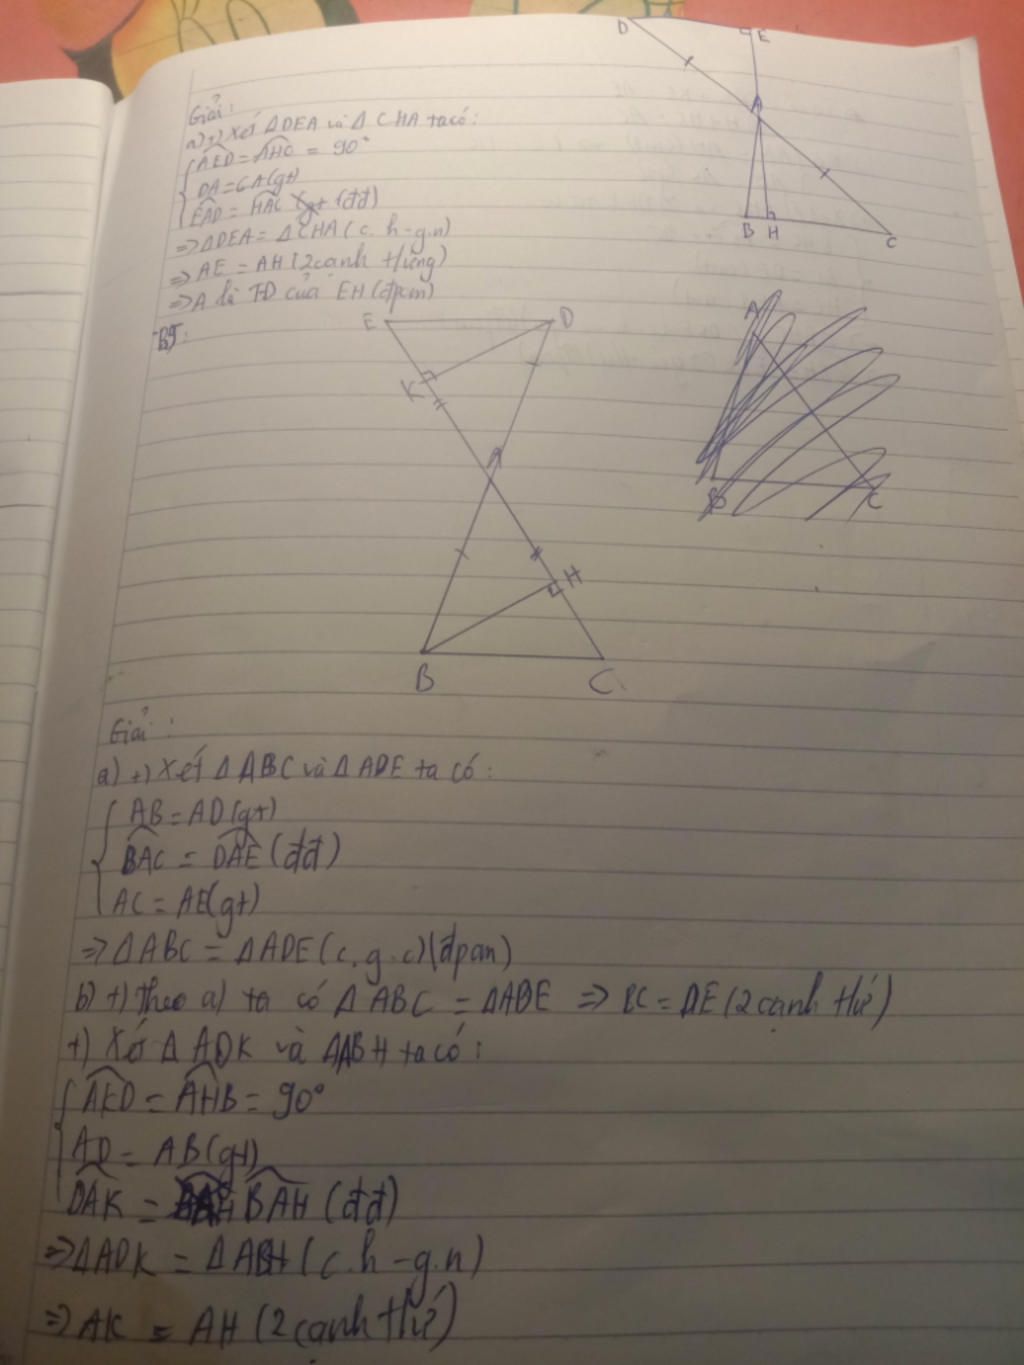 D
E
A
B H
C
Giải:
a) +) Xét ΔDEA và Δ CHA ta có:
AED = AHC = 90°
DA = CA (gt)
EAD = HAC (đđ)
=> ΔDEA = ΔCHA (c.h-g.n)
=> AE = AH (2 cạnh t/ứng)
=> A là TĐ của EH (đpcm)
E
D
K
A
H
B
C
A
B
C
Giải:
a) +) Xét Δ ABC và Δ ADE ta có:
AB = AD (gt)
BAC = DAE (đđ)
AC = AE (gt)
=> Δ ABC = Δ ADE (c.g.c) (đpcm)
b) +) Theo a) ta có Δ ABC = ΔADE => BC = DE (2 cạnh t/ứ)
+) Xét Δ ADK và ΔABH ta có:
AKD = AHB = 90°
AD = AB (gt)
DAK = BAH (đđ)
=> ΔADK = ΔABH (c.h-g.n)
=> AK = AH (2 cạnh t/ứ)